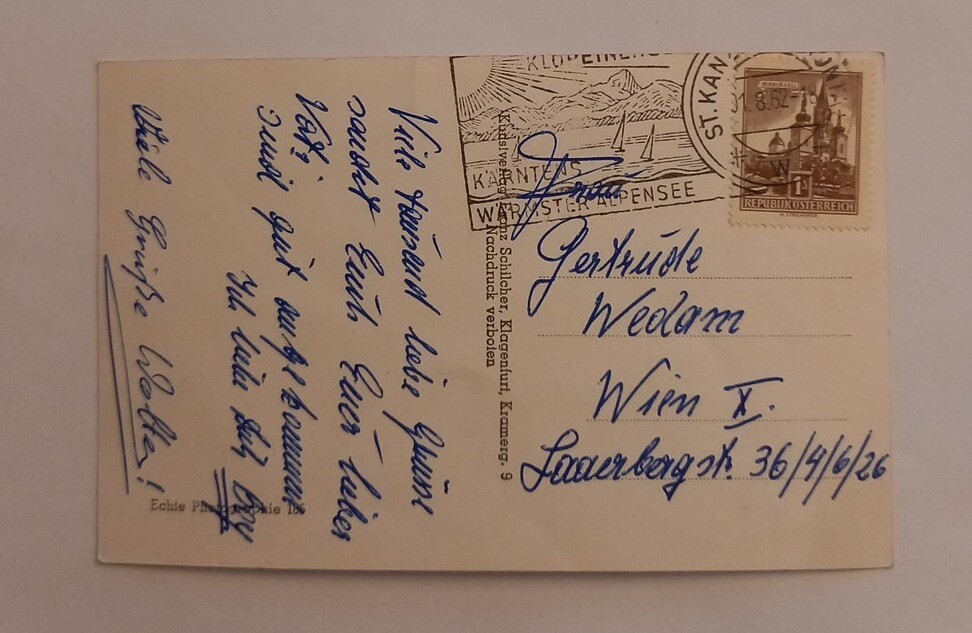 Viele tausend liebe Grüße
sendet Euch Euer lieber
Vati
gut angekommen
Ich
Viele Grüße Walter!
Echte Photographie
Kunstverlag Franz Schilcher, Klagenfurt, Kramerg. 9
Nachdruck verboten
KLOPEINERSEE
KÄRNTENS
WÄRMSTER ALPENSEE
ST. KAN
1.8.62
MARIAZELL
1S
REPUBLIK ÖSTERREICH
Frau
Gertrude
Wedam
Wien X.
Laaerbergstr. 36/4/6/26